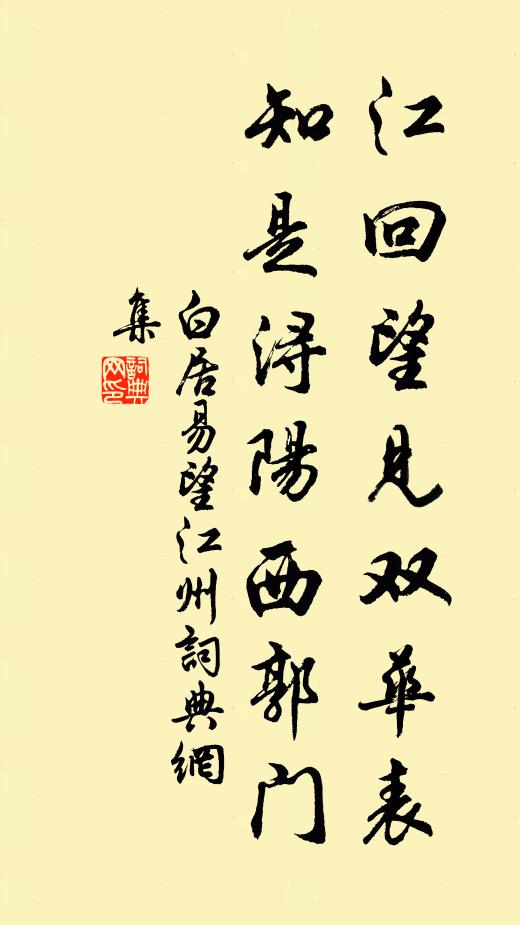 江回望見双華表
知是浔陽西郭门
白居易望江州詞典網
集
詞典
网印